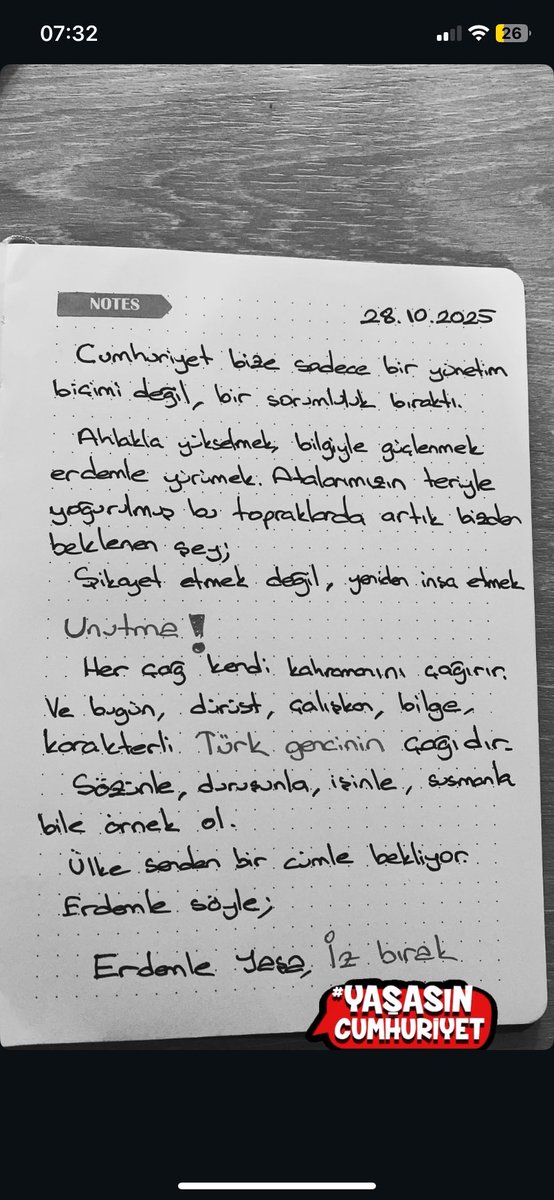 07:32
26
NOTES
28.10.2025
Cumhuriyet bize sadece bir yönetim
biçimi değil, bir sorumluluk bıraktı.
Ahlakla yükselmek, bilgiyle güçlenmek
erdemle yürümek. Atalarımızın teriyle
yoğurulmuş bu topraklarda artık bizden
beklenen şey;
Şikayet etmek değil, yeniden inşa etmek
Unutma!
Her çağ kendi kahramanını çağırır.
Ve bugün, dürüst, çalışkan, bilge,
karakterli Türk gencinin çağıdır.
Sözünle, duruşunla, işinle, susmanla
bile örnek ol.
Ülke senden bir cümle bekliyor.
Erdemle söyle;
Erdemle Yaşa, İz bırak
#YAŞASIN
CUMHURİYET